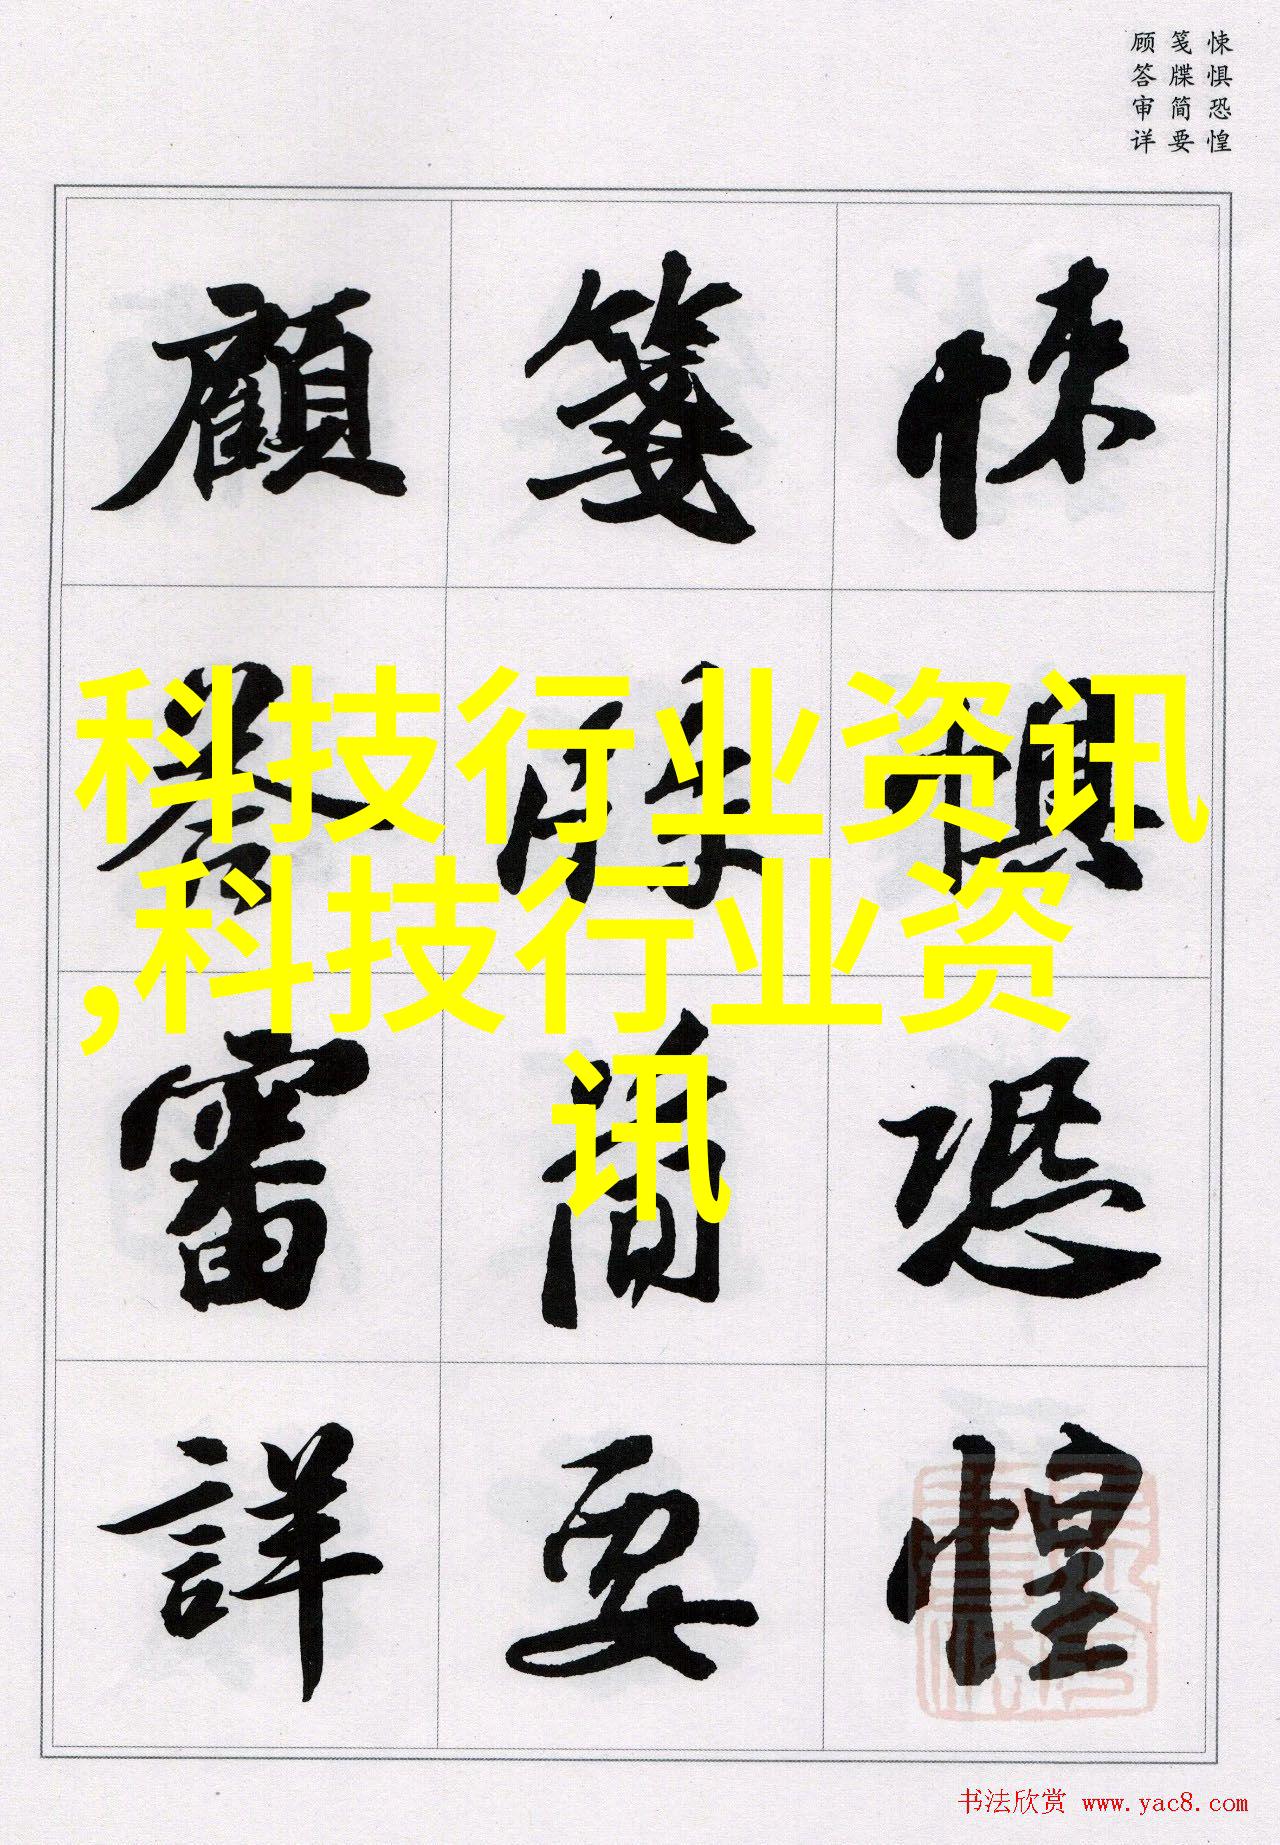 悚惧恐惶
笺牒简要
顾答审详
悚惧恐惶
笺牒简要
顧答審詳
科技行业资讯
,科技行业资
讯
书法欣赏 www.yac8.com